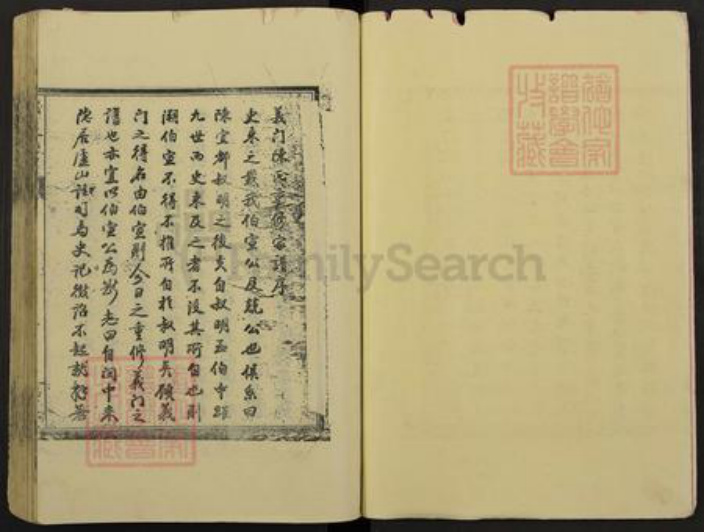 義門陳氏重修家譜序
史來之載我伯宣公及兢公也俱系曰
陳宜都叔明之後夫自叔明至伯宣歷
九世而史不及之者不沒其所自也則
溯伯宣不得不推所自於叔明矣顧義
門之得名由伯宣則今日之重修義門之
譜也亦宜以伯宣公為斷老曰自閩中來
隱居廬山註司馬史記徵詔不起就拜著
FamilySearch
譜學會
收藏